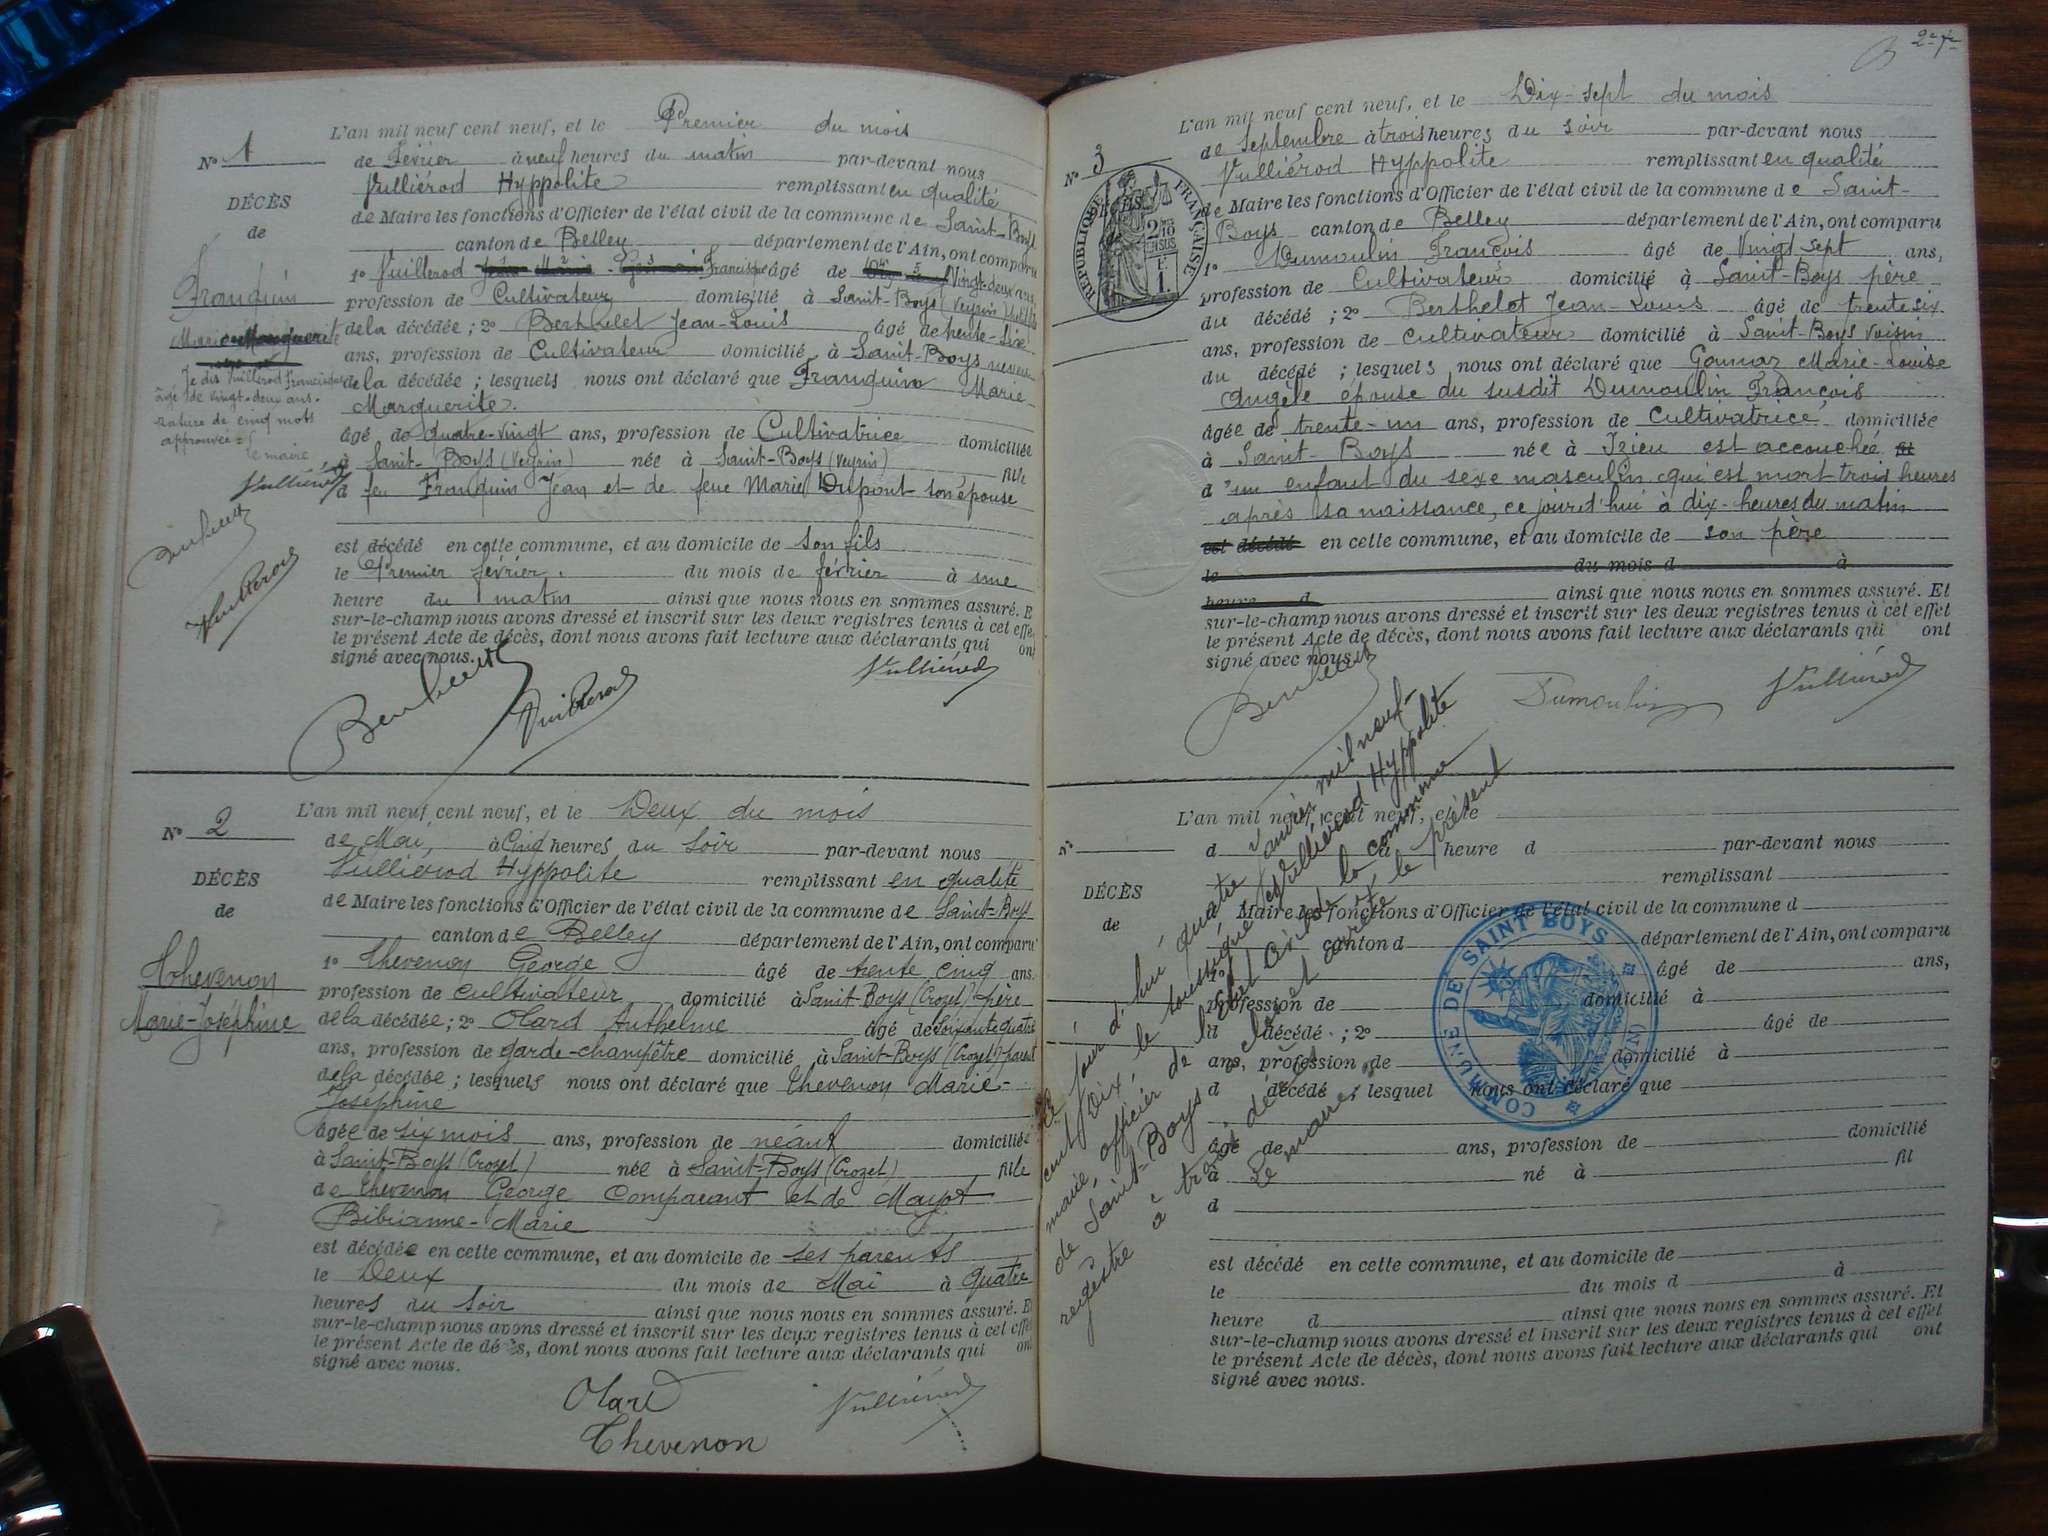 N° 1
DÉCÈS
de
Franquin
Marie Marguerite
Je dis Vuillerod Francisque
âgé de vingt-deux ans.
rature de cinq mots
approuvée =
le maire
Vulliérod
L'an mil neuf cent neuf, et le Premier du mois
de Février à neuf heures du matin par-devant nous
Vulliérod Hyppolite remplissant en qualité
de Maire les fonctions d'Officier de l'état civil de la commune de Saint-Boys
canton de Belley département de l'Ain, ont comparu
1° Vuillerod Francisque âgé de Vingt-deux ans,
profession de Cultivateur domicilié à Saint-Boys (Veyrin)
de la décédée ; 2° Berthelet Jean-Louis âgé de trente-six
ans, profession de Cultivateur domicilié à Saint-Boys neveu
de la décédée ; lesquels nous ont déclaré que Franquin Marie
Marguerite.
âgé de quatre-vingt ans, profession de Cultivatrice domiciliée
à Saint-Boys (Veyrin) née à Saint-Boys (Veyrin) fille
d feu Franquin Jean et de feue Marie Dupont son épouse
est décédé en cette commune, et au domicile de son fils
le Premier février. du mois de février à une
heure du matin ainsi que nous nous en sommes assuré. E
sur-le-champ nous avons dressé et inscrit sur les deux registres tenus à cet effe
le présent Acte de décès, dont nous avons fait lecture aux déclarants qui ont
signé avec nous.
Vulliérod
N° 2
DÉCÈS
de
Thevenon
Marie-Joséphine
L'an mil neuf cent neuf, et le Deux du mois
de Mai, à Cinq heures du Soir par-devant nous
Vulliérod Hyppolite remplissant en qualité
de Maire les fonctions d'Officier de l'état civil de la commune de Saint-Boys
canton de Belley département de l'Ain, ont comparu
1° Thevenon George âgé de trente cinq ans.
profession de cultivateur domicilié à Saint-Boys (Crozet) père
de la décédée ; 2° Olard Anthelme âgé de Soixante quatre
ans, profession de garde-champêtre domicilié à Saint-Boys (Crozet) parent
de la décédée ; lesquels nous ont déclaré que Thevenon Marie-
Joséphine
âgée de six mois ans, profession de néant domiciliée
à Saint-Boys (Crozet) née à Saint-Boys (Crozet) fille
de Thevenon George Comparant et de Mayot
Bibianne-Marie
est décédée en cette commune, et au domicile de ses parents
le Deux du mois de Mai à quatre
heures du Soir ainsi que nous nous en sommes assuré. E
sur-le-champ nous avons dressé et inscrit sur les deux registres tenus à cet effe
le présent Acte de décès, dont nous avons fait lecture aux déclarants qui ont
signé avec nous.
Olard
Vulliérod
Thevenon
N° 3
RÉPUBLIQUE FRANÇAISE
L'an mil neuf cent neuf, et le Dix-sept du mois
de Septembre à trois heures du soir par-devant nous
Vulliérod Hyppolite remplissant en qualité
de Maire les fonctions d'Officier de l'état civil de la commune de Saint-
Boys canton de Belley département de l'Ain, ont comparu
1° Dumoulin François âgé de Vingt sept ans,
profession de Cultivateur domicilié à Saint-Boys père
du décédé ; 2° Berthelot Jean-Louis âgé de trente six
ans, profession de Cultivateur domicilié à Saint-Boys voisin
du décédé ; lesquels nous ont déclaré que Gonnaz Marie-Louise
Angèle épouse du susdit Dumoulin François
âgée de trente-un ans, profession de Cultivatrice domiciliée
à Saint Boys née à Izieu est accouchée fil
d'un enfant du sexe masculin qui est mort trois heures
après sa naissance, ce jourd'hui à dix-heures du matin
est décédé en cette commune, et au domicile de son père
le du mois d à
heure d ainsi que nous nous en sommes assuré. Et
sur-le-champ nous avons dressé et inscrit sur les deux registres tenus à cet effet
le présent Acte de décès, dont nous avons fait lecture aux déclarants qui ont
signé avec nous.
Dumoulin
Vulliérod
N°
DÉCÈS
de
L'an mil neuf cent neuf, et le
d à heure d par-devant nous
remplissant
Maire les fonctions d'Officier de l'état civil de la commune d
canton d département de l'Ain, ont comparu
âgé de ans,
profession de domicilié à
d décédé ; 2° âgé de
ans, profession de domicilié à
d décédé ; lesquel nous ont déclaré que
âgé de ans, profession de domicilié
à né à fil
d
est décédé en cette commune, et au domicile de
le du mois d à
heure d ainsi que nous nous en sommes assuré. Et
sur-le-champ nous avons dressé et inscrit sur les deux registres tenus à cet effet
le présent Acte de décès, dont nous avons fait lecture aux déclarants qui ont
signé avec nous.
Ce jour d'hui quatre Janvier mil neuf-
cent Dix, le soussigné Vulliérod Hyppolite
maire, officier de l'Etat Civil de la commune
de Saint-Boys clos et arrêté le présent
registre à trois décès
Le maire,
COMMUNE DE SAINT BOYS (AIN)